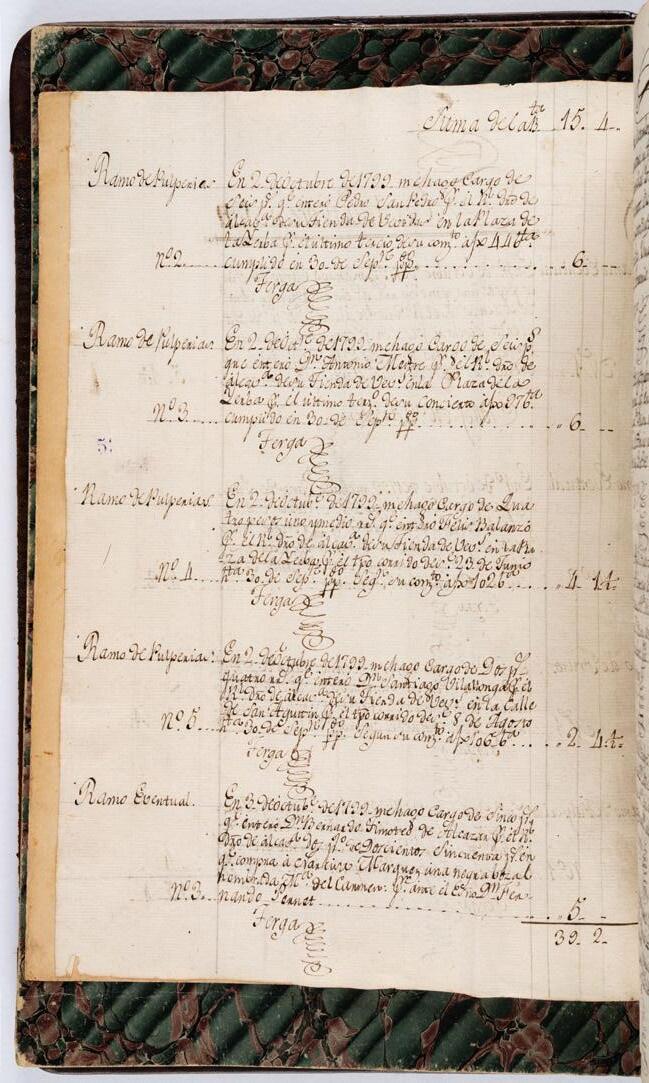 Suma de la B.ta 15. 4.
Ramo de Pulperias En 2 de Octubre de 1799 me hago Cargo de
Seis p.s q.e enteró Pedro San Pedro p.r el R.l dro de
alcav.a de su tienda de en la Plaza de
la Yerba p.r el ultimo tercio de su com.to a fx 446 ta
nº 2. cumplido en 30. de Sep.e pp. 6.
Ferga
Ramo de Pulperias En 2 de Oct.e de 1799. me hago Cargo de Seis p.s
que enteró D.n Antonio Mestre p.r el R.l dro. de
alcav.a de su Tienda de en la Plaza de la
Yerba p.r el ultimo terc.o de su Concierto a fx 976. ta
Nº 3. cumplido en 30. de Sep.e pp. 6.
Ferga
5.
Ramo de Pulperias En 2. de Octub.e de 1799. me hago Cargo de Qua
tro pesos uno y medio rr.s q.e enteró Felis Balanzó
p.r el R.l dro. de alcav.a de su tienda de en la Pla
za de la Yerba p.r el tpo corrido des.e 23. de Junio
Nº 4. h.ta 30. de Sep.e pp. Seg.n su com.to a fx 1026 ta 4. 1 4.
Ferga
Ramo de Pulperias En 2. de Octubre de 1799. me hago Cargo de Dos p.s
quatro rr.s q.e enteró D.n Santiago Vilallonga p.r el
R.l dro. de alcav.a de su Tienda de en la Calle
de San Agustin p.r el tpo corrido des.e 8. de Agosto
Nº 5. h.ta 30. de Sep.e pp. Segun su com.to a fx 1056 ta 2. 4 4.
Ferga
Ramo Eventual. En 3. de Octub.e de 1799. me hago Cargo de Sinco p.s
q.e enteró D.n Bernardo Timoteo de Alcazar p.r el R.l
dro. de alcav.a de Docientos Sincuenta p.s en
q.e compró á Marquez una negra bozal
nombrada M.a del Carmen p.r ante el Esno. D.n Fer-
Nº 3. nando Pernet 5.
Ferga
39. 2.